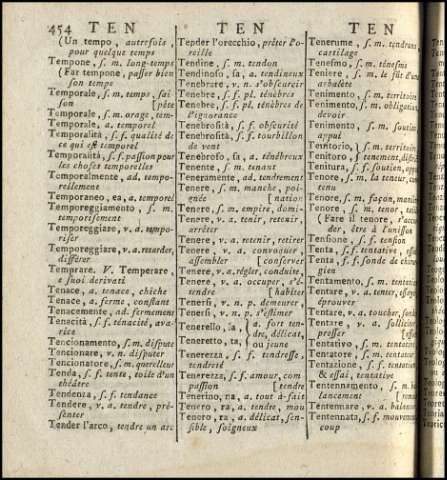 454 TEN TEN TEN
(Un tempo, autrefois,
pour quelque temps
Tempone, s. m. long-temps
(Far tempone, passer bien
son temps
Temporale, s. m. temps, sai
son [pête
Temporale, s. m. orage, tem-
Temporale, a. temporel
Temporalità, s. f. qualité de
ce qui est temporel
Temporalità, s. f. passion pour
les choses temporelles
Temporalmente, ad. tempo-
rellement
Temporaneo, ea, a. temporel
Temporeggiamento, s. m.
temporisement
Temporeggiare, v. a. tempo-
riser
Temporeggiare, v. a. retarder,
différer
Temprare. V. Temperare,
e suoi derivati
Tenace, a. tenace, chiche
Tenace, a. ferme, constant
Tenacemente, ad. fermement
Tenacità, s. f. ténacité, ava-
rice
Tencionamento, s. m. dispute
Tencionare, v. n. disputer
Tencionatore, s. m. querelleur
Tenda, s. f. tente, toile d'un
théâtre
Tendenza, s. f. tendance
Tendere, v. a. tendre, pré-
senter
Tender l'arco, tendre un arc
Tender l'orecchio, prêter l'o-
reille
Tendine, s. m. tendon
Tendinoso, sa, a. tendineux
Tenebrare, v. n. s'obscurcir
Tenebre, s. f. pl. ténèbres
Tenebre, s. f. pl. ténèbres de
l'ignorance
Tenebrosità, s. f. obscurité
Tenebrosità, s. f. tourbillon
de vent
Tenebroso, sa, a. ténébreux
Tenente, s. m. tenant
Teneramente, ad. tendrement
Tenere, s. m. manche, poi-
gnée [nation
Tenere, s. m. empire, domi-
Tenere, v. a. tenir, retenir,
arrêter
Tenere, v. a. retenir, retirer
Tenere, v. a. convoquer,
assembler [conserver
Tenere, v. a. régler, conduire,
Tenere, v. a. occuper, s'é-
tendre [habiter
Tenersi, v. n. p. demeurer
Tenersi, v. n. p. s'estimer
Tenerello, la, } a. fort ten-
dre, délicat,
Teneretto, ta, } ou jeune
Tenerezza, s. f. tendresse,
tendreté
Tenerezza, s. f. amour, com-
passion [tendre
Tenerino, na, a. tout-à-fait
Tenero, ra, a. tendre, mou
Tenero, ra, a. délicat, sen-
sible, soigneux
Tenerume, s. m. tendrons,
cartilage
Tenesmo, s. m. ténesme
Teniere, s. m. le fût d'une
arbalête
Tenimento, s. m. territoire
Tenimento, s. m. obligation,
devoir
Tenimento, s. m. soutien,
appui
Tenitorio, } s. m. territoire,
Tenitoro, } tenement, district
Tenitura, s. f. soutien, appui
Tenore, s. m. la teneur, con-
tenu
Tenore, s. m. façon, manière
Tenore, s. m. tenor, taille
(Fare il tenore, s'accor-
der, être à l'unisson
Tensione, s. f. tension
Tenta, s. f. tentative,
Tenta, s. f. sonde de chirur-
gien
Tentamento, s. m. tentation
Tentare, v. a. tenter, essayer,
éprouver
Tentare, v. a. toucher,
Tentare, v. a. solliciter,
presser
Tentativo, s. m. tentative
Tentatore, s. m. tentateur
Tentazione, s. f. tentation
& essai, tentative
Tentennamento, s. m.
lancement
Tentennare, v. a.
Tentennata, s. f. mouvement,
coup